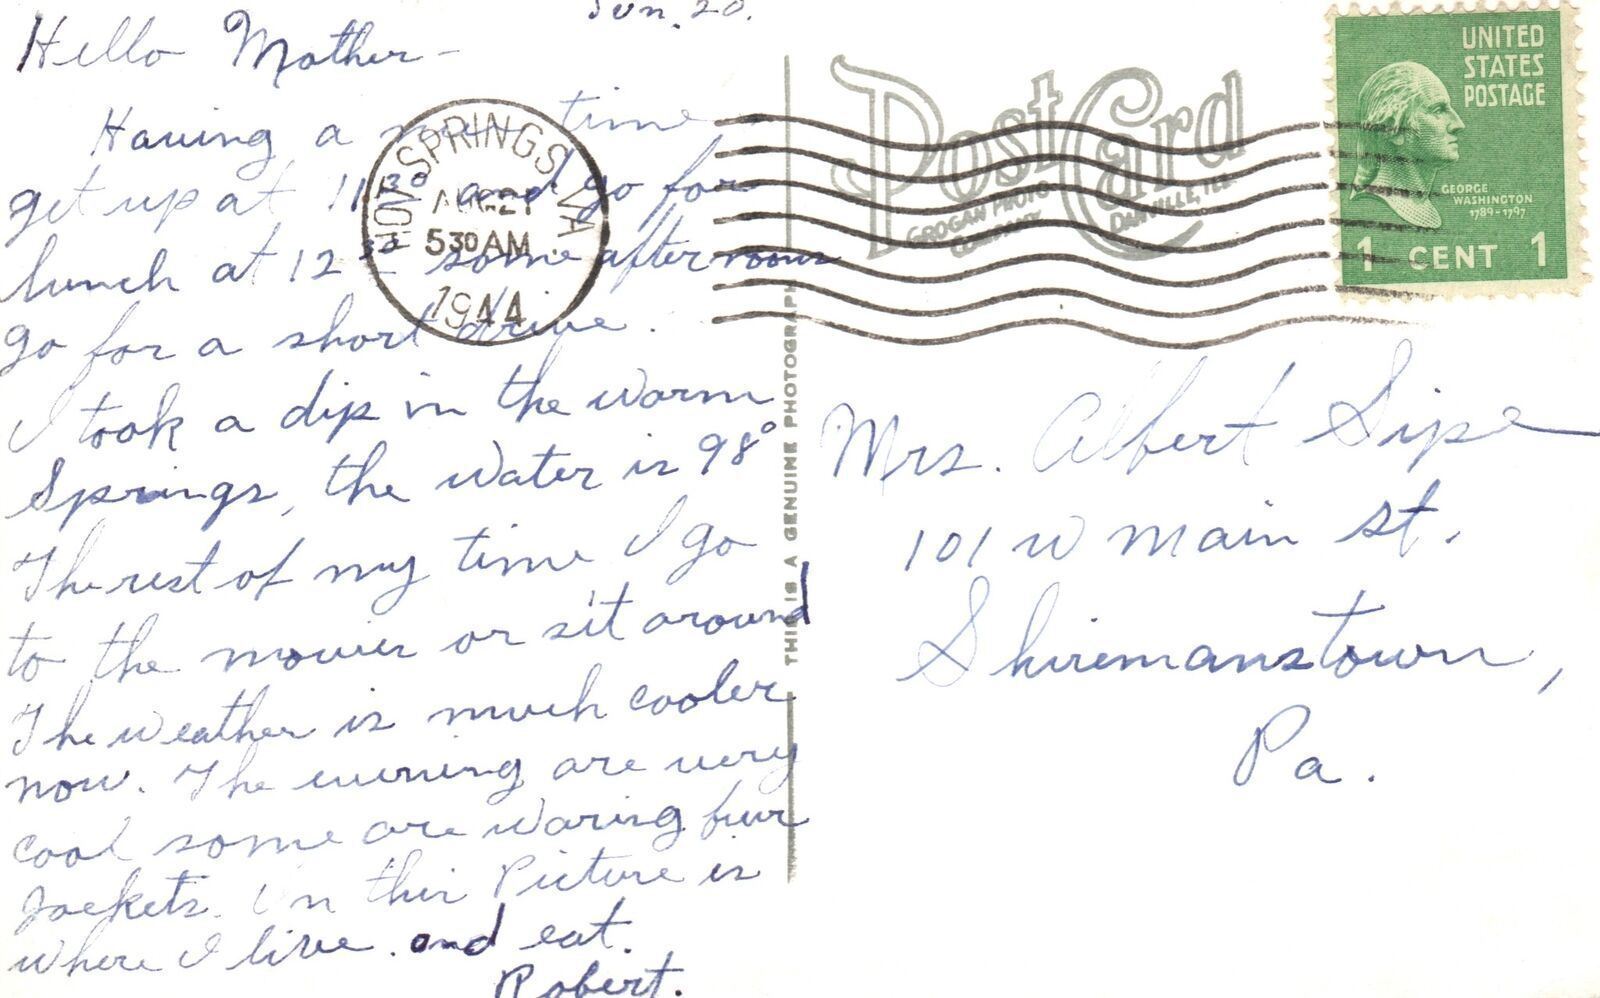 Sun. 20.
Hello Mother -
Having a nice time
get up at 11 30 and go for
lunch at 12 30 - some afternoons
go for a short drive.
I took a dip in the warm
Springs, the water is 98°
The rest of my time I go
to the movies or sit around
The weather is much cooler
now. The evening are very
cool some are waring fur
Jackets. In this Picture is
where I live and eat.
Robert.
HOT SPRINGS VA
AUG 21
5 30 AM
1944
Post Card
GROGAN PHOTO
COMPANY
DANVILLE, ILL.
THIS IS A GENUINE PHOTOGRAPH
UNITED
STATES
POSTAGE
GEORGE
WASHINGTON
1789-1797
1 CENT 1
Mrs. Albert Sipe
101 W Main St.
Shiremanstown,
Pa.